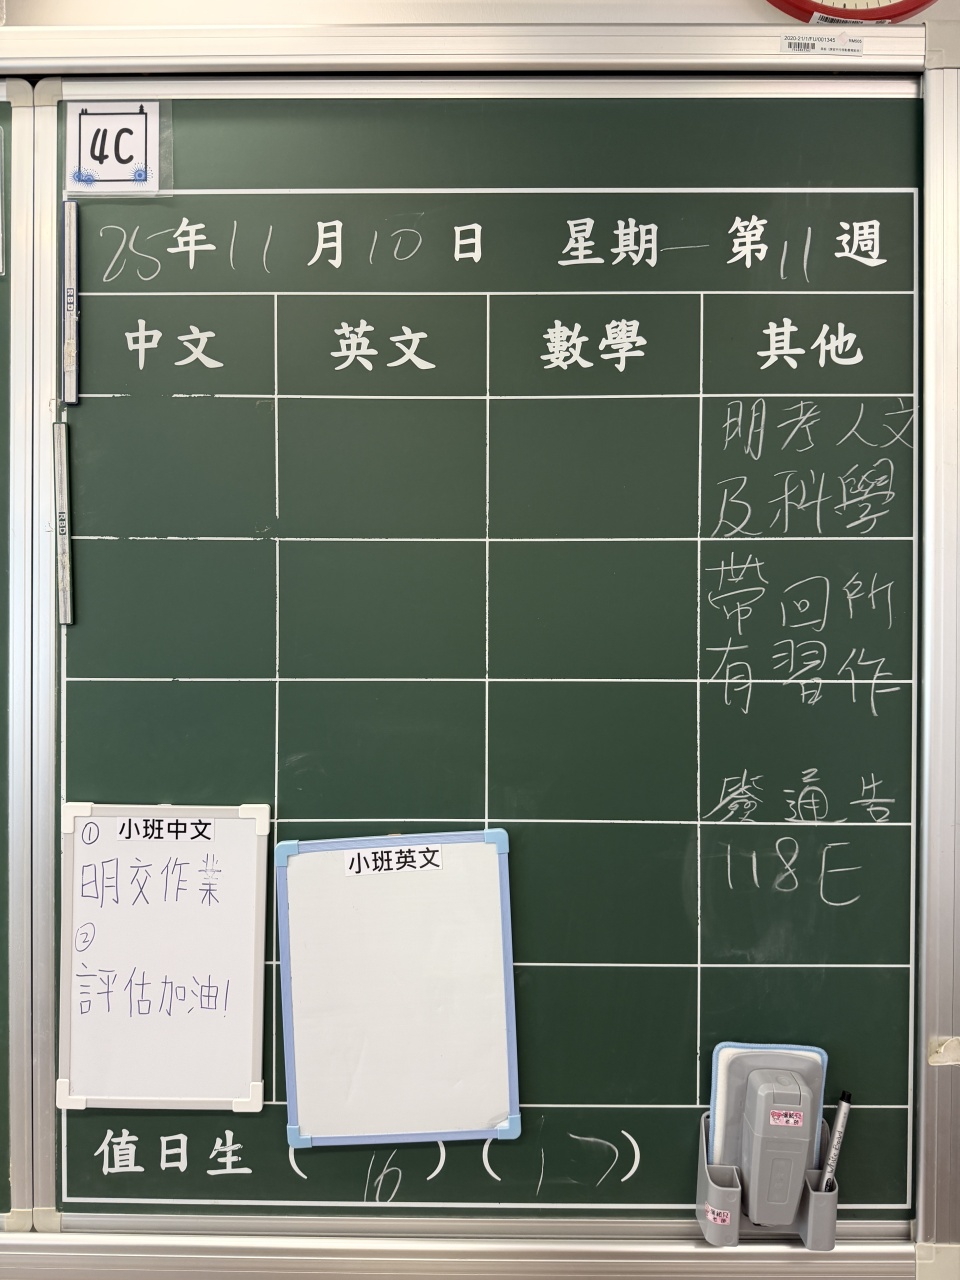 2020-21/1/FU/001345
4C
25年11月10日 星期一 第11週
中文 英文 數學 其他
明考人文
及科學
帶回所
有習作
發通告
118E
小班中文
①
明交作業
②
評估加油!
小班英文
值日生 (16) (17)